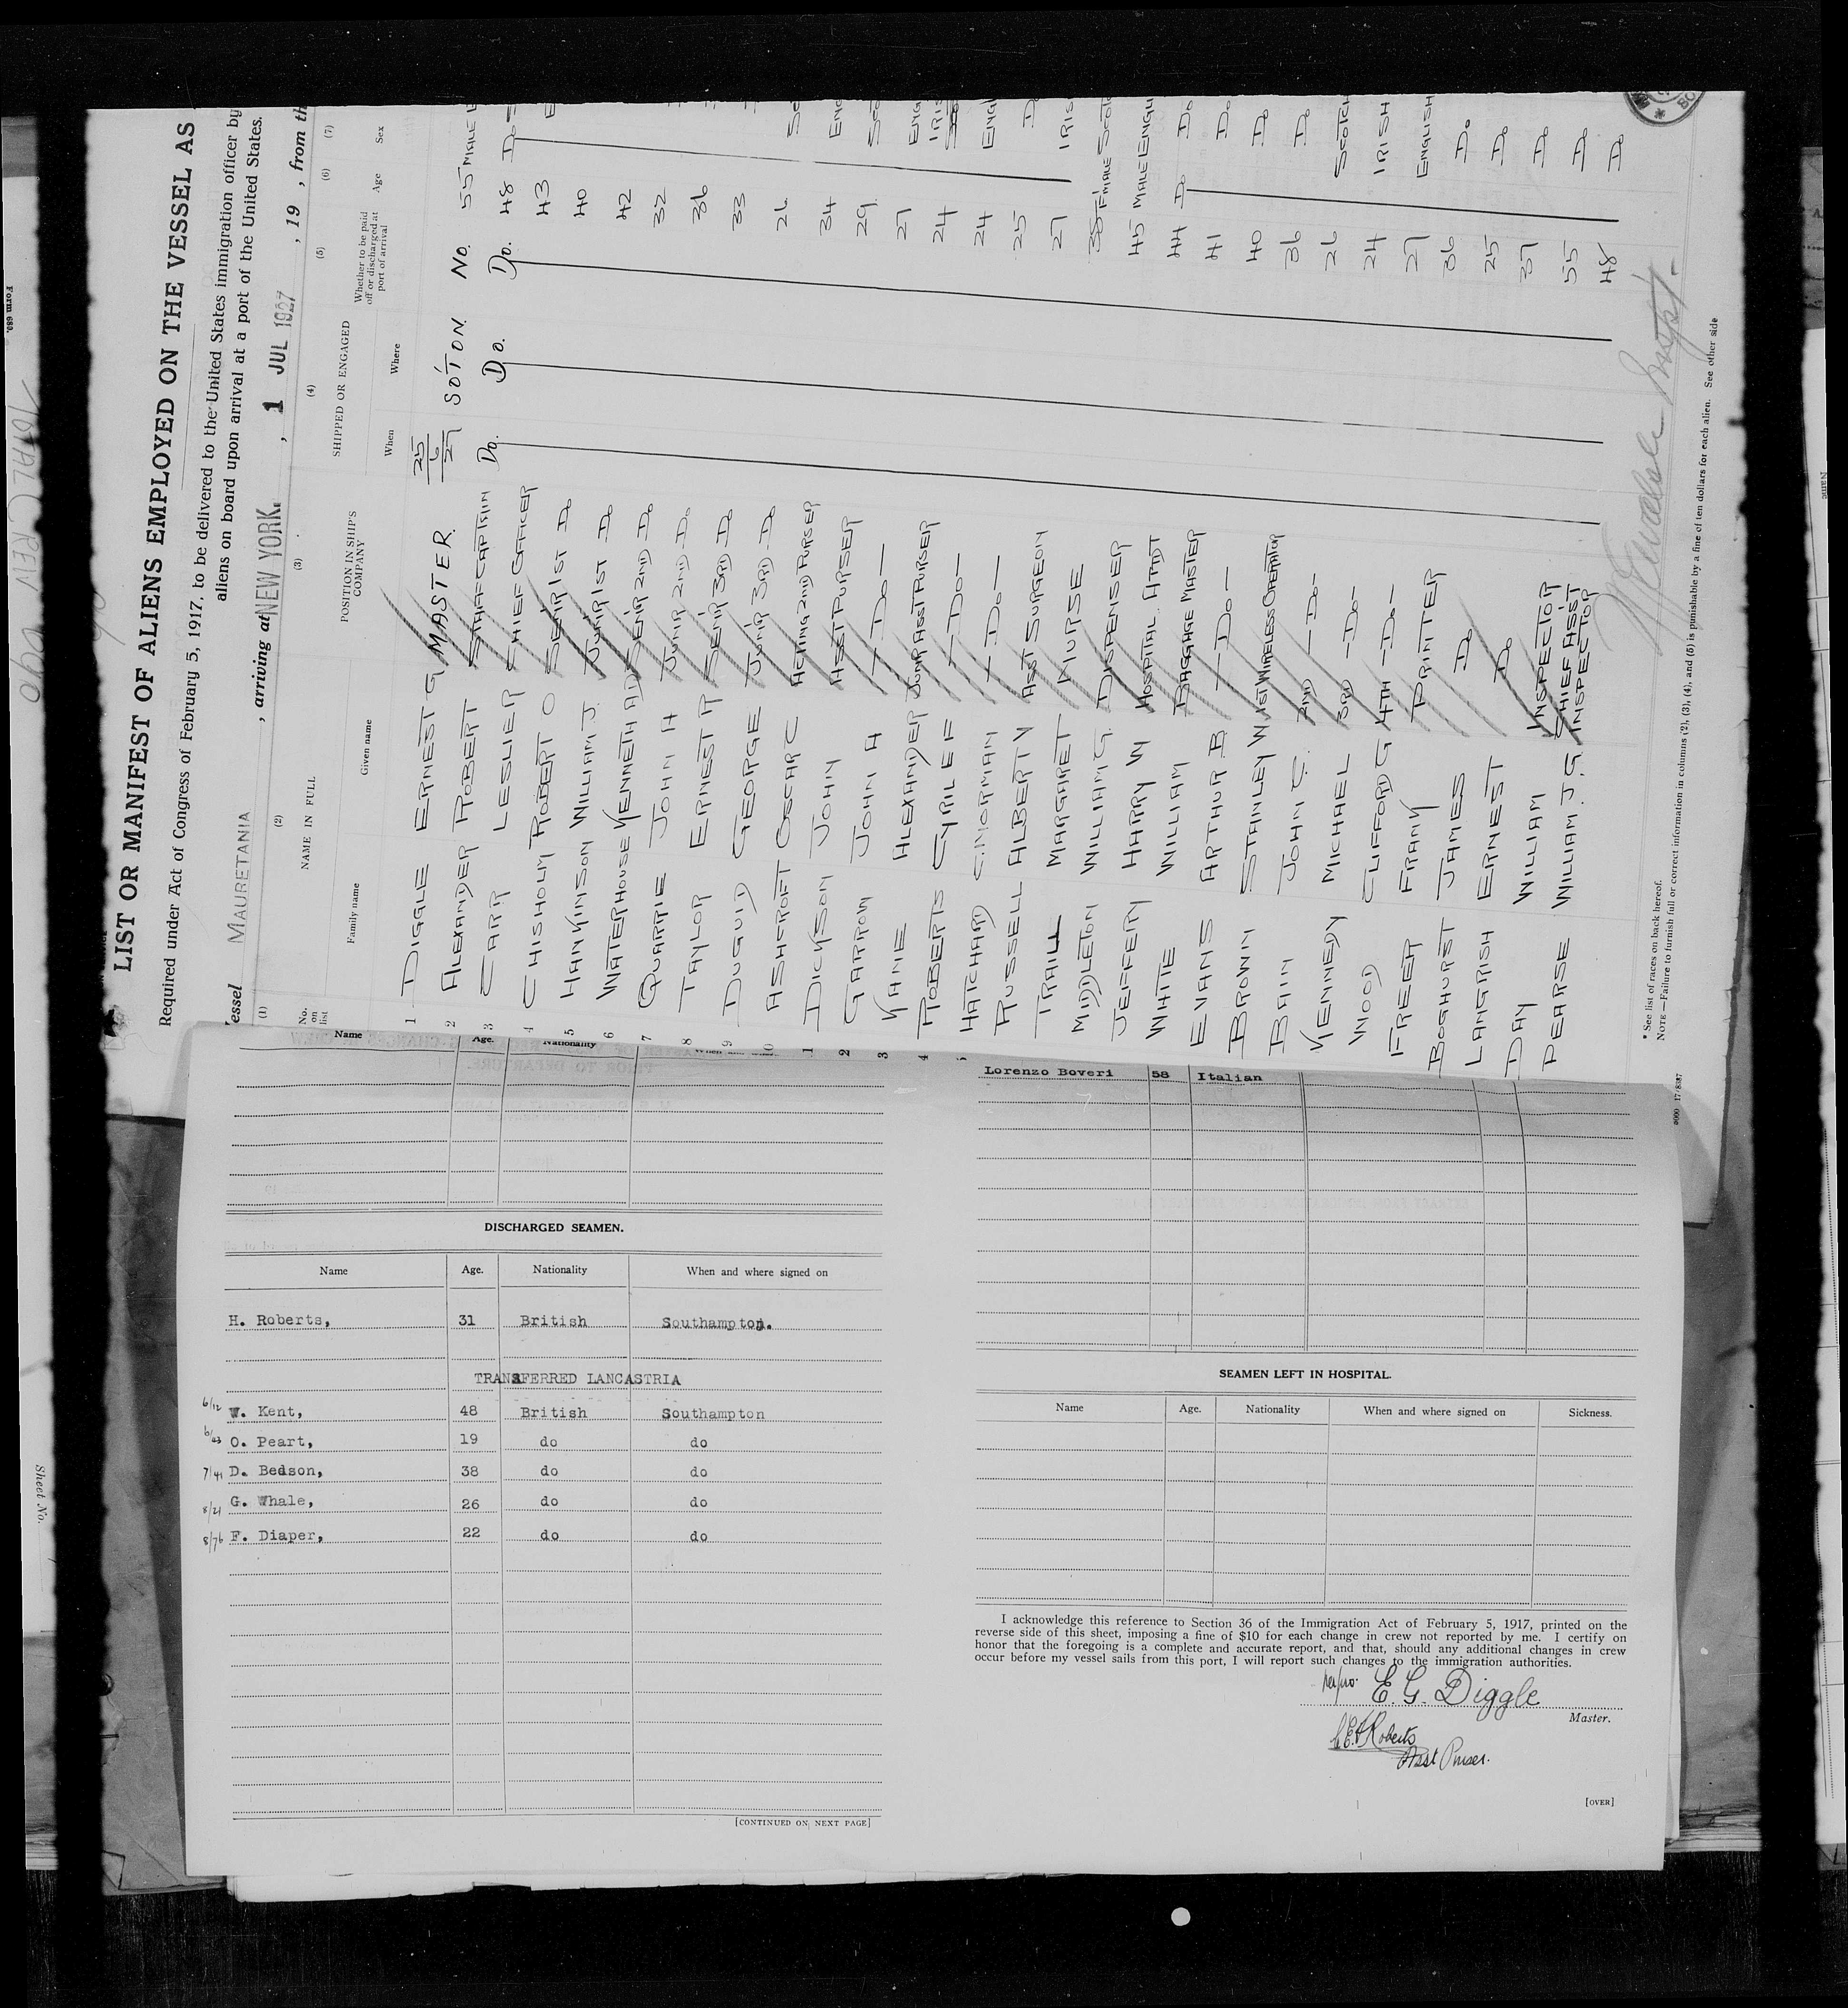 LIST OR MANIFEST OF ALIENS EMPLOYED ON THE VESSEL AS
Required under Act of Congress of February 5, 1917, to be delivered to the United States immigration officer by
aliens on board upon arrival at a port of the United States.
essel MAURETANIA , arriving at NEW YORK. , 1 JUL 1927 , 19 , from th
(1) (2) (3) (4) (5) (6) (7)
No. on list NAME IN FULL POSITION IN SHIP'S COMPANY SHIPPED OR ENGAGED Whether to be paid off or discharged at port of arrival Age Sex
Family name Given name When Where
1 DIGGLE ERNEST G MASTER. 25/6/27 SOTON. No. 55 MALE E
2 ALEXANDER ROBERT STAFF CAPTAIN Do. Do. Do. 48 Do S
3 CARR LESLIE R CHIEF OFFICER 43 E
4 CHISHOLM ROBERT O SENIR 1ST Do 40
5 HANKINSON WILLIAM J. JUNIR 1ST Do 42
6 WATERHOUSE KENNETH AD SENIR 2ND Do 32
7 QUARRIE JOHN H JUNIR 2ND Do 36
8 TAYLOR ERNEST R SENIR 3RD Do 33
9 DUGUID GEORGE JUNIR 3RD Do 26 Sc
0 ASHCROFT OSCAR C ACTING 2ND PURSER 34 ENG
1 DICKSON JOHN ASST PURSER 29 Sco
2 GARROW JOHN A — Do — 27 ENG
3 KANE ALEXANDER JUNR ASST PURSER 24 IRIS
4 ROBERTS CYRIL E F — Do — 24 ENGL
HATCHARD C. NORMAN — Do — 25 D
RUSSELL ALBERT V ASST SURGEON 27 IRIS
TRAILL MARGARET NURSE 35 FMALE SCOTC
MIDDLETON WILLIAM G. DISPENSER 45 MALE ENGLI
JEFFERY HARRY W HOSPITAL ATTDT 44 Do Do
WHITE WILLIAM BAGGAGE MASTER 41 Do
EVANS ARTHUR B. — Do — 40 Do
BROWN STANLEY W 1ST WIRELESS OPERATOR 36 Do
BAIN JOHN C. 2ND — Do — 26 SCOTCH
KENNEDY MICHAEL 3RD — Do — 24 IRISH
WOOD CLIFFORD G 4TH — Do — 27 ENGLISH
FREER FRANK PRINTER 36 Do
BOGHURST JAMES Do 25 Do
LANGRISH ERNEST Do 37 Do
DAY WILLIAM INSPECTOR 55 Do
PEARSE WILLIAM. J. G. CHIEF ASIST INSPECTOR 48 Do
* See list of races on back hereof.
NOTE—Failure to furnish full or correct information in columns (2), (3), (4), and (5) is punishable by a fine of ten dollars for each alien. See other side
Form 689.
Sheet No.
Name Age. Nationality
Lorenzo Boveri 58 Italian
DISCHARGED SEAMEN.
Name Age. Nationality When and where signed on
H. Roberts, 31 British Southampton.
TRANSFERRED LANCASTRIA
6/12 W. Kent, 48 British Southampton
O. Peart, 19 do do
7/41 D. Bedson, 38 do do
8/21 G. Whale, 26 do do
8/76 F. Diaper, 22 do do
[CONTINUED ON NEXT PAGE]
SEAMEN LEFT IN HOSPITAL.
Name Age. Nationality When and where signed on Sickness.
I acknowledge this reference to Section 36 of the Immigration Act of February 5, 1917, printed on the
reverse side of this sheet, imposing a fine of $10 for each change in crew not reported by me. I certify on
honor that the foregoing is a complete and accurate report, and that, should any additional changes in crew
occur before my vessel sails from this port, I will report such changes to the immigration authorities.
per/pro. E. G. Diggle
Master.
C.E.F. Roberts
Asst Purser.
[OVER]